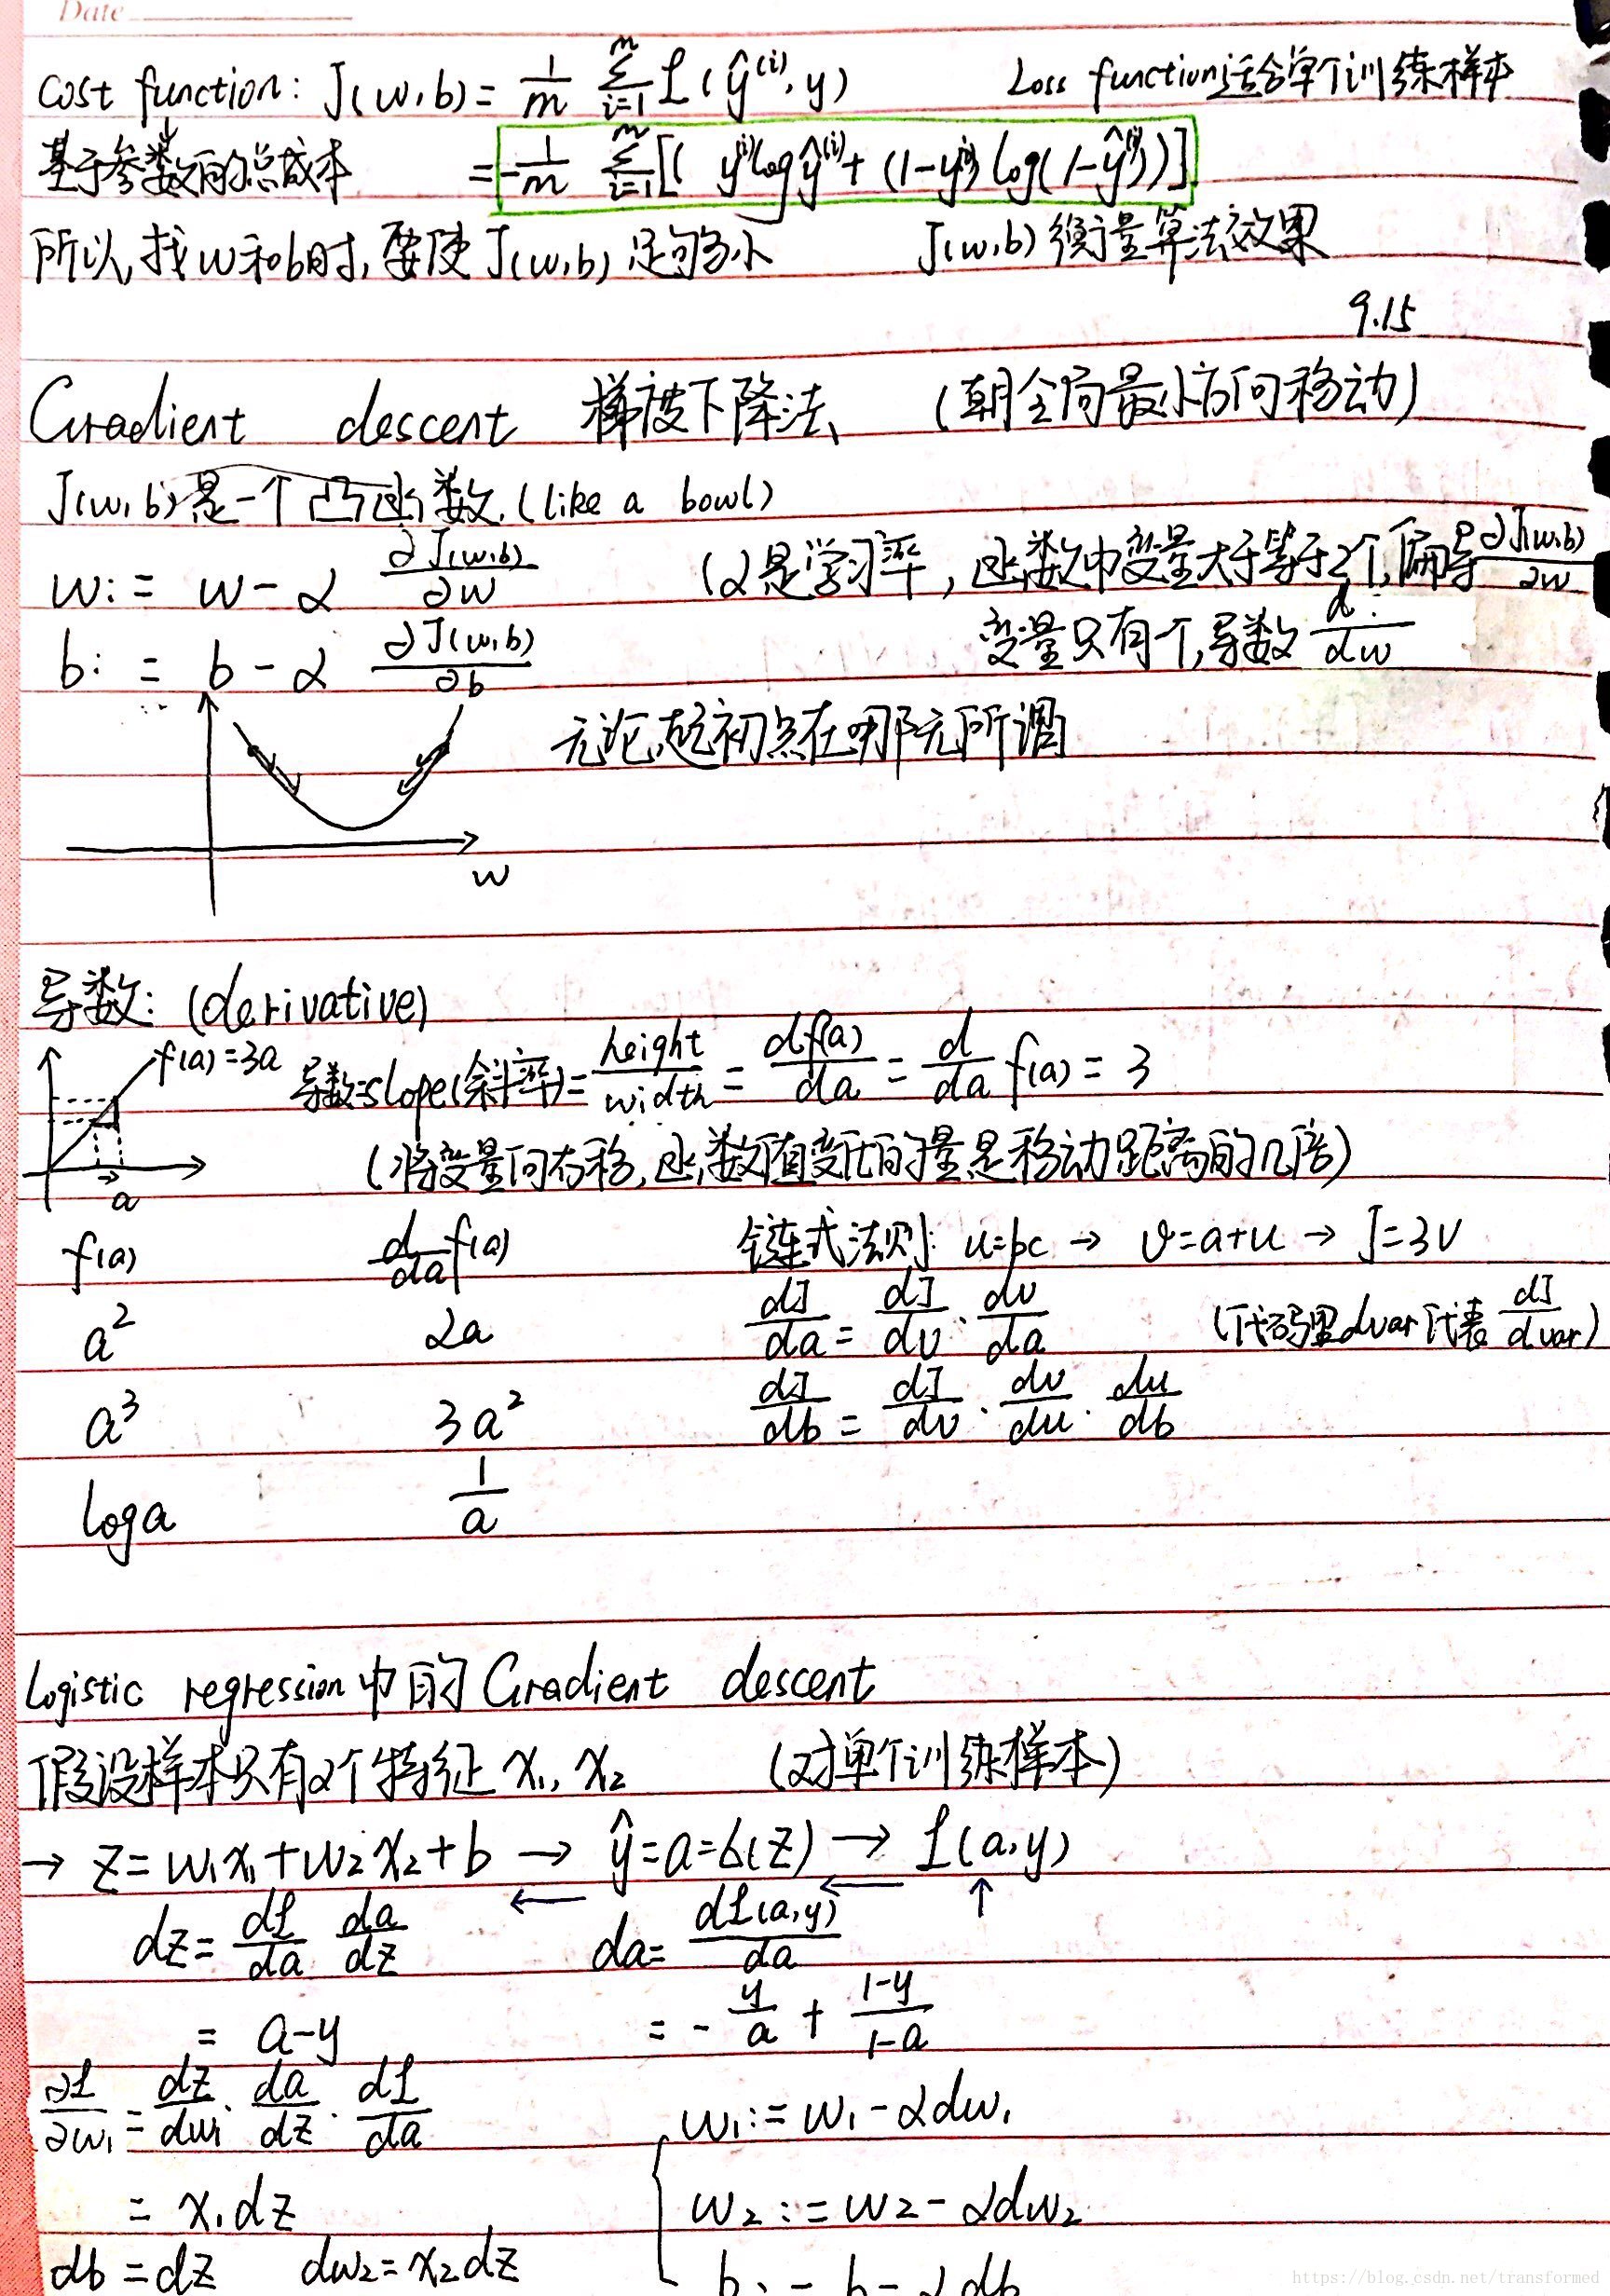 Date
Cost function: J(w,b) = 1/m Σ_{i=1}^{m} L(ŷ^(i), y) Loss function适合单个训练样本
基于参数的总成本 = -1/m Σ_{i=1}^{m} [( y^(i) log ŷ^(i) + (1-y^(i)) log(1-ŷ^(i)))]
所以,找w和b时,要使J(w,b)足够小 J(w,b)衡量算法效果
9.15
Gradient descent 梯度下降法 (朝全局最小方向移动)
J(w,b)是一个凸函数.(like a bowl)
w := w - α ∂J(w,b)/∂w (α是学习率,函数中变量大于等于2个,偏导 ∂J(w,b)/∂w
b := b - α ∂J(w,b)/∂b 变量只有1个,导数 d/dw
无论起初点在哪无所谓
w
导数: (derivative)
f(a)=3a 导数:slope(斜率)= height/width = df(a)/da = d/da f(a) = 3
(将变量向右移,函数值变化的量是移动距离的几倍)
a
f(a) d/da f(a) 链式法则: u=bc → v=a+u → J=3v
a² 2a dJ/da = dJ/dv · dv/da (代码里dvar代表 dJ/dvar)
a³ 3a² dJ/db = dJ/dv · dv/du · du/db
log a 1/a
Logistic regression中的Gradient descent
假设样本只有2个特征 x₁, x₂ (对单个训练样本)
→ z = w₁x₁+w₂x₂+b → ŷ=a=6(z) → L(a,y)
← ← ↑
dz = dL/da da/dz da = dL(a,y)/da
= a-y = -y/a + (1-y)/(1-a)
∂L/∂w₁ = dz/dw₁ · da/dz · dL/da w₁ := w₁-αdw₁
= x₁dz w₂ := w₂-αdw₂
db = dz dw₂ = x₂dz b := b-αdb
https://blog.csdn.net/transformed